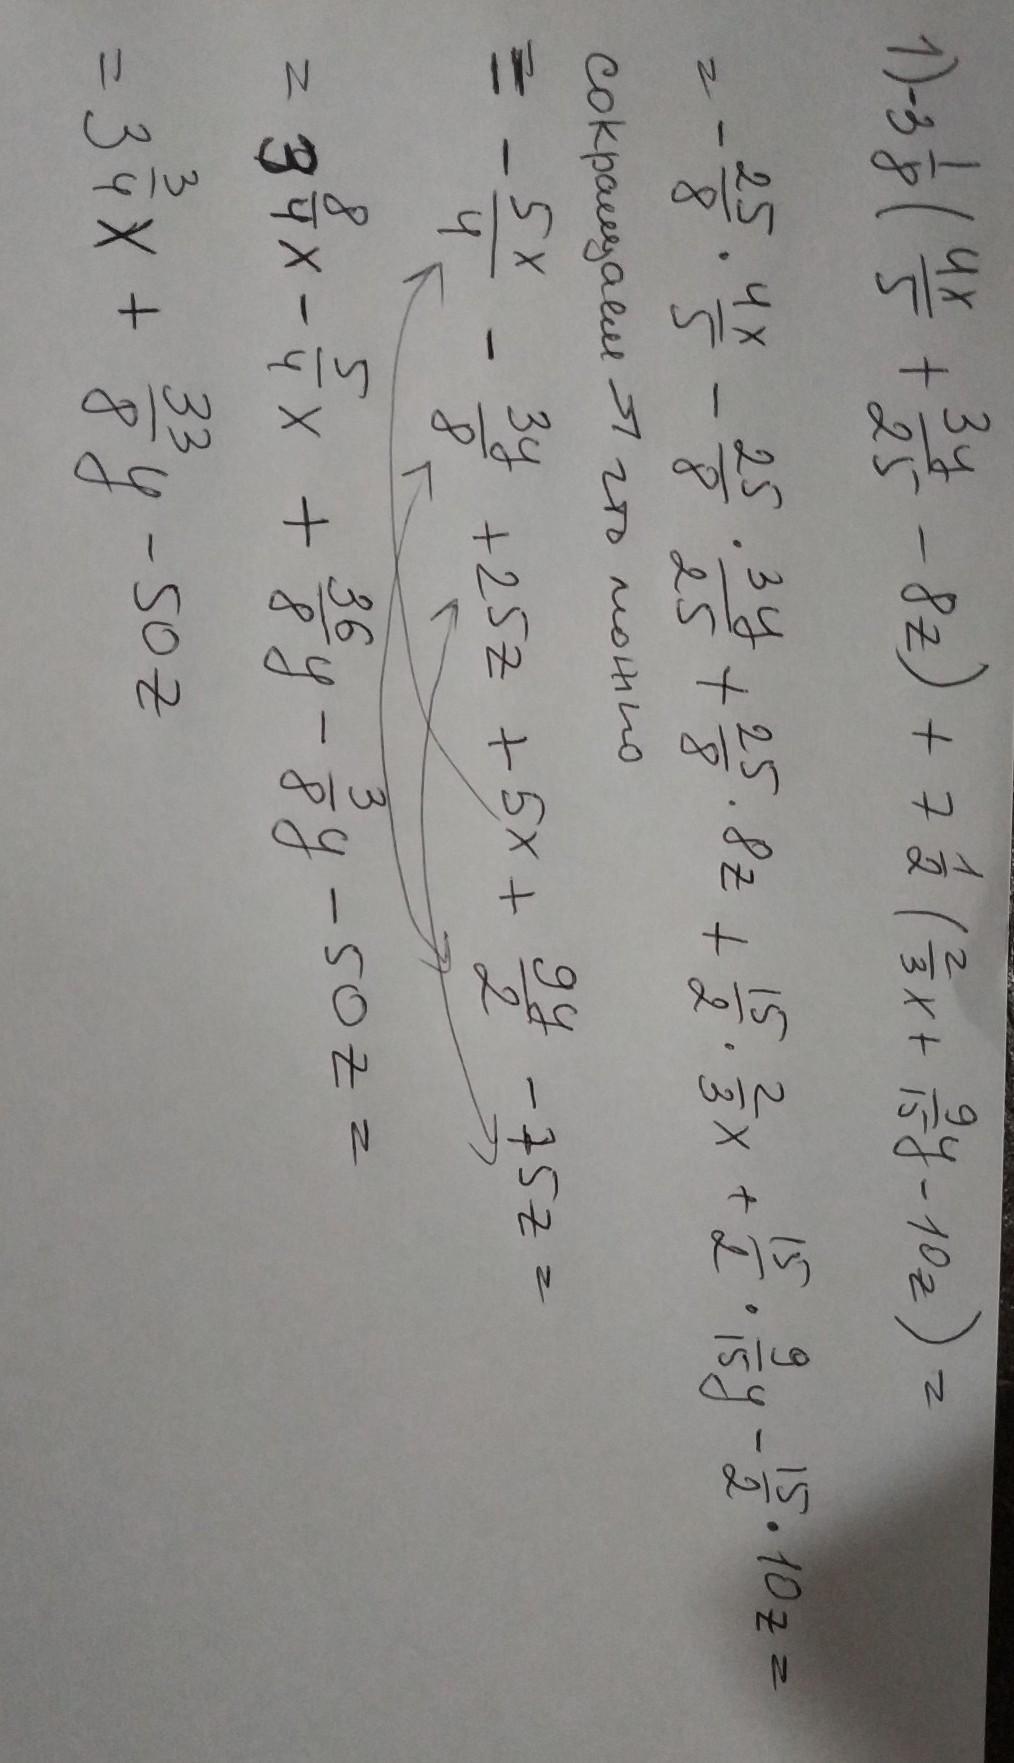 1) -3 1/8 ( 4x/5 + 3y/25 - 8z) + 7 1/2 ( 2/3 x + 9/15 y - 10z) =
= - 25/8 · 4x/5 - 25/8 · 3y/25 + 25/8 · 8z + 15/2 · 2/3 x + 15/2 · 9/15 y - 15/2 · 10z =
сокращаем что можно
= - 5x/4 - 3y/8 + 25z + 5x + 9y/2 - 75z =
= 3 8/4 x - 5/4 x + 36/8 y - 3/8 y - 50z =
= 3 3/4 x + 33/8 y - 50z